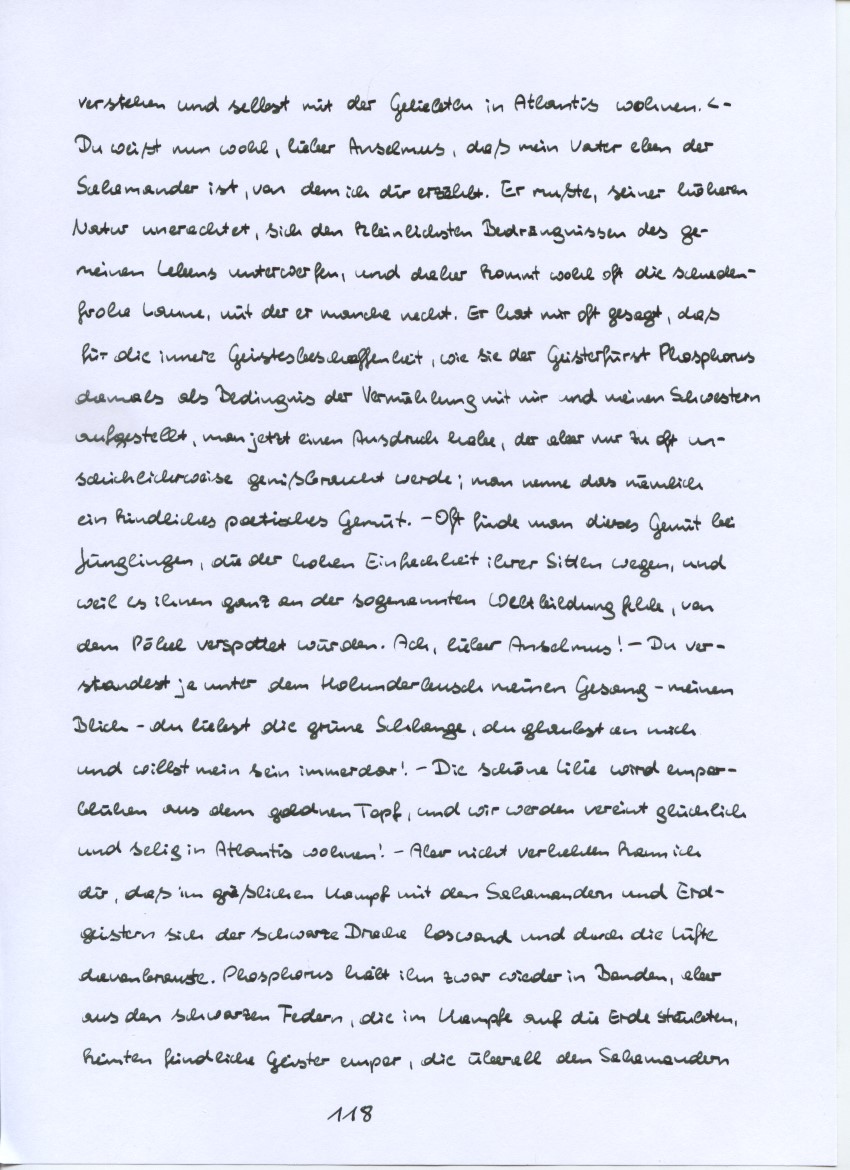 verstehen und selbst mit der Geliebten in Atlantis wohnen.<-
Du weißt nun wohl, lieber Anselmus, daß mein Vater eben der
Salamander ist, von dem ich dir erzählt. Er mußte, seiner höheren
Natur unerachtet, sich den kleinlichsten Bedrängnissen des ge-
meinen Lebens unterwerfen, und daher kommt wohl oft die schaden-
frohe Laune, mit der er manche neckt. Er hat mir oft gesagt, daß
für die innere Geistesbeschaffenheit, wie sie der Geisterfürst Phosphorus
damals als Bedingnis der Vermählung mit mir und meinen Schwestern
aufgestellt, man jetzt einen Ausdruck habe, der aber nur zu oft un-
schicklicherweise gemißbraucht werde; man nenne das nämlich
ein kindliches poetisches Gemüt. - Oft finde man dieses Gemüt bei
Jünglingen, die der hohen Einfachheit ihrer Sitten wegen, und
weil es ihnen ganz an der sogenannten Weltbildung fehle, von
dem Pöbel verspottet würden. Ach, lieber Anselmus! - Du ver-
standest ja unter dem Holunderbusch meinen Gesang - meinen
Blick - du liebst die grüne Schlange, du glaubst an mich
und willst mein sein immerdar! - Die schöne Lilie wird empor-
blühen aus dem goldnen Topf, und wir werden vereint glücklich
und selig in Atlantis wohnen! - Aber nicht verhehlen kann ich
dir, daß im gräßlichen Kampf mit den Salamandern und Erd-
geistern sich der schwarze Drache loswand und durch die Lüfte
davonbrauste. Phosphorus hält ihn zwar wieder in Banden, aber
aus den schwarzen Federn, die im Kampfe auf die Erde stäubten,
keimten feindliche Geister empor, die überall den Salamandern
118